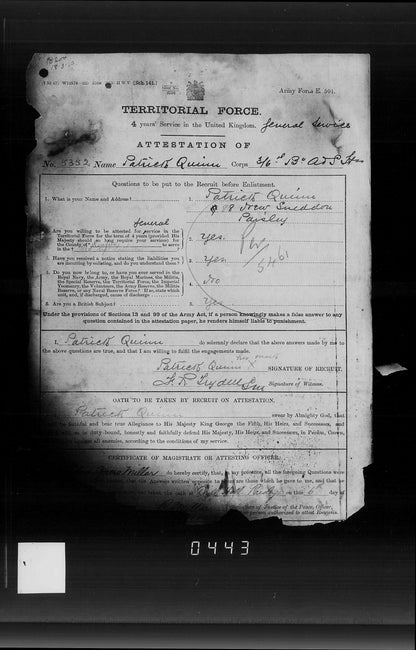 Army Form E. 501.
TERRITORIAL FORCE.
4 years' Service in the United Kingdom. General Service
ATTESTATION OF
No. 5352 Name Patrick Quinn Corps 3/6th "B" A & S
Questions to be put to the Recruit before Enlistment.
1. What is your Name and Address? 1. Patrick Quinn
88 New Sneddon
Paisley
general
2. Are you willing to be attested for service in the
Territorial Force for the term of 4 years (provided His
Majesty should so long require your services) for
the County of to serve
in the 2. Yes.
3. Have you received a notice stating the liabilities you
are incurring by enlisting, and do you understand them? 3. Yes
4. Do you now belong to, or have you ever served in the
Royal Navy, the Army, the Royal Marines, the Militia,
the Special Reserve, the Territorial Force, the Imperial
Yeomanry, the Volunteers, the Army Reserve, the Militia
Reserve, or any Naval Reserve Force? If so, state which
unit, and, if discharged, cause of discharge 4. No
5. Are you a British Subject? 5. Yes
Under the provisions of Sections 13 and 99 of the Army Act, if a person knowingly makes a false answer to any
question contained in the attestation paper, he renders himself liable to punishment.
I, Patrick Quinn do solemnly declare that the above answers made by me to
the above questions are true, and that I am willing to fulfil the engagements made.
Patrick Quinn his mark X SIGNATURE OF RECRUIT.
Signature of Witness.
OATH TO BE TAKEN BY RECRUIT ON ATTESTATION.
Patrick Quinn swear by Almighty God, that
be faithful and bear true Allegiance to His Majesty King George the Fifth, His Heirs, and Successors, and
as in duty bound, honestly and faithfully defend His Majesty, His Heirs, and Successors, in Person, Crown,
against all enemies, according to the conditions of my service.
CERTIFICATE OF MAGISTRATE OR ATTESTING OFFICER.
Miller do hereby certify, that, in my presence, all the foregoing Questions were
that the Answers written opposite to them are those which he gave to me, and that he
taken the oath at on this 6th day of
of Justice of the Peace, Officer,
or person authorized to attest Recruits.
0443